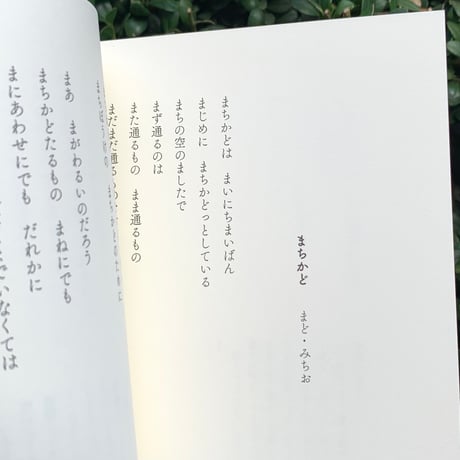 まちかど　まど・みちお
まちかどは　まいにちまいばん
まじめに　まちかどっとしている
まちの空のましたで
まず通るのは
また通るもの　まま通るもの
まだまだ通る
まちぼうけの
まあ　まがわるいのだろう
まちかどたるもの　まねにでも
まにあわせにでも　だれかに
でいなくては